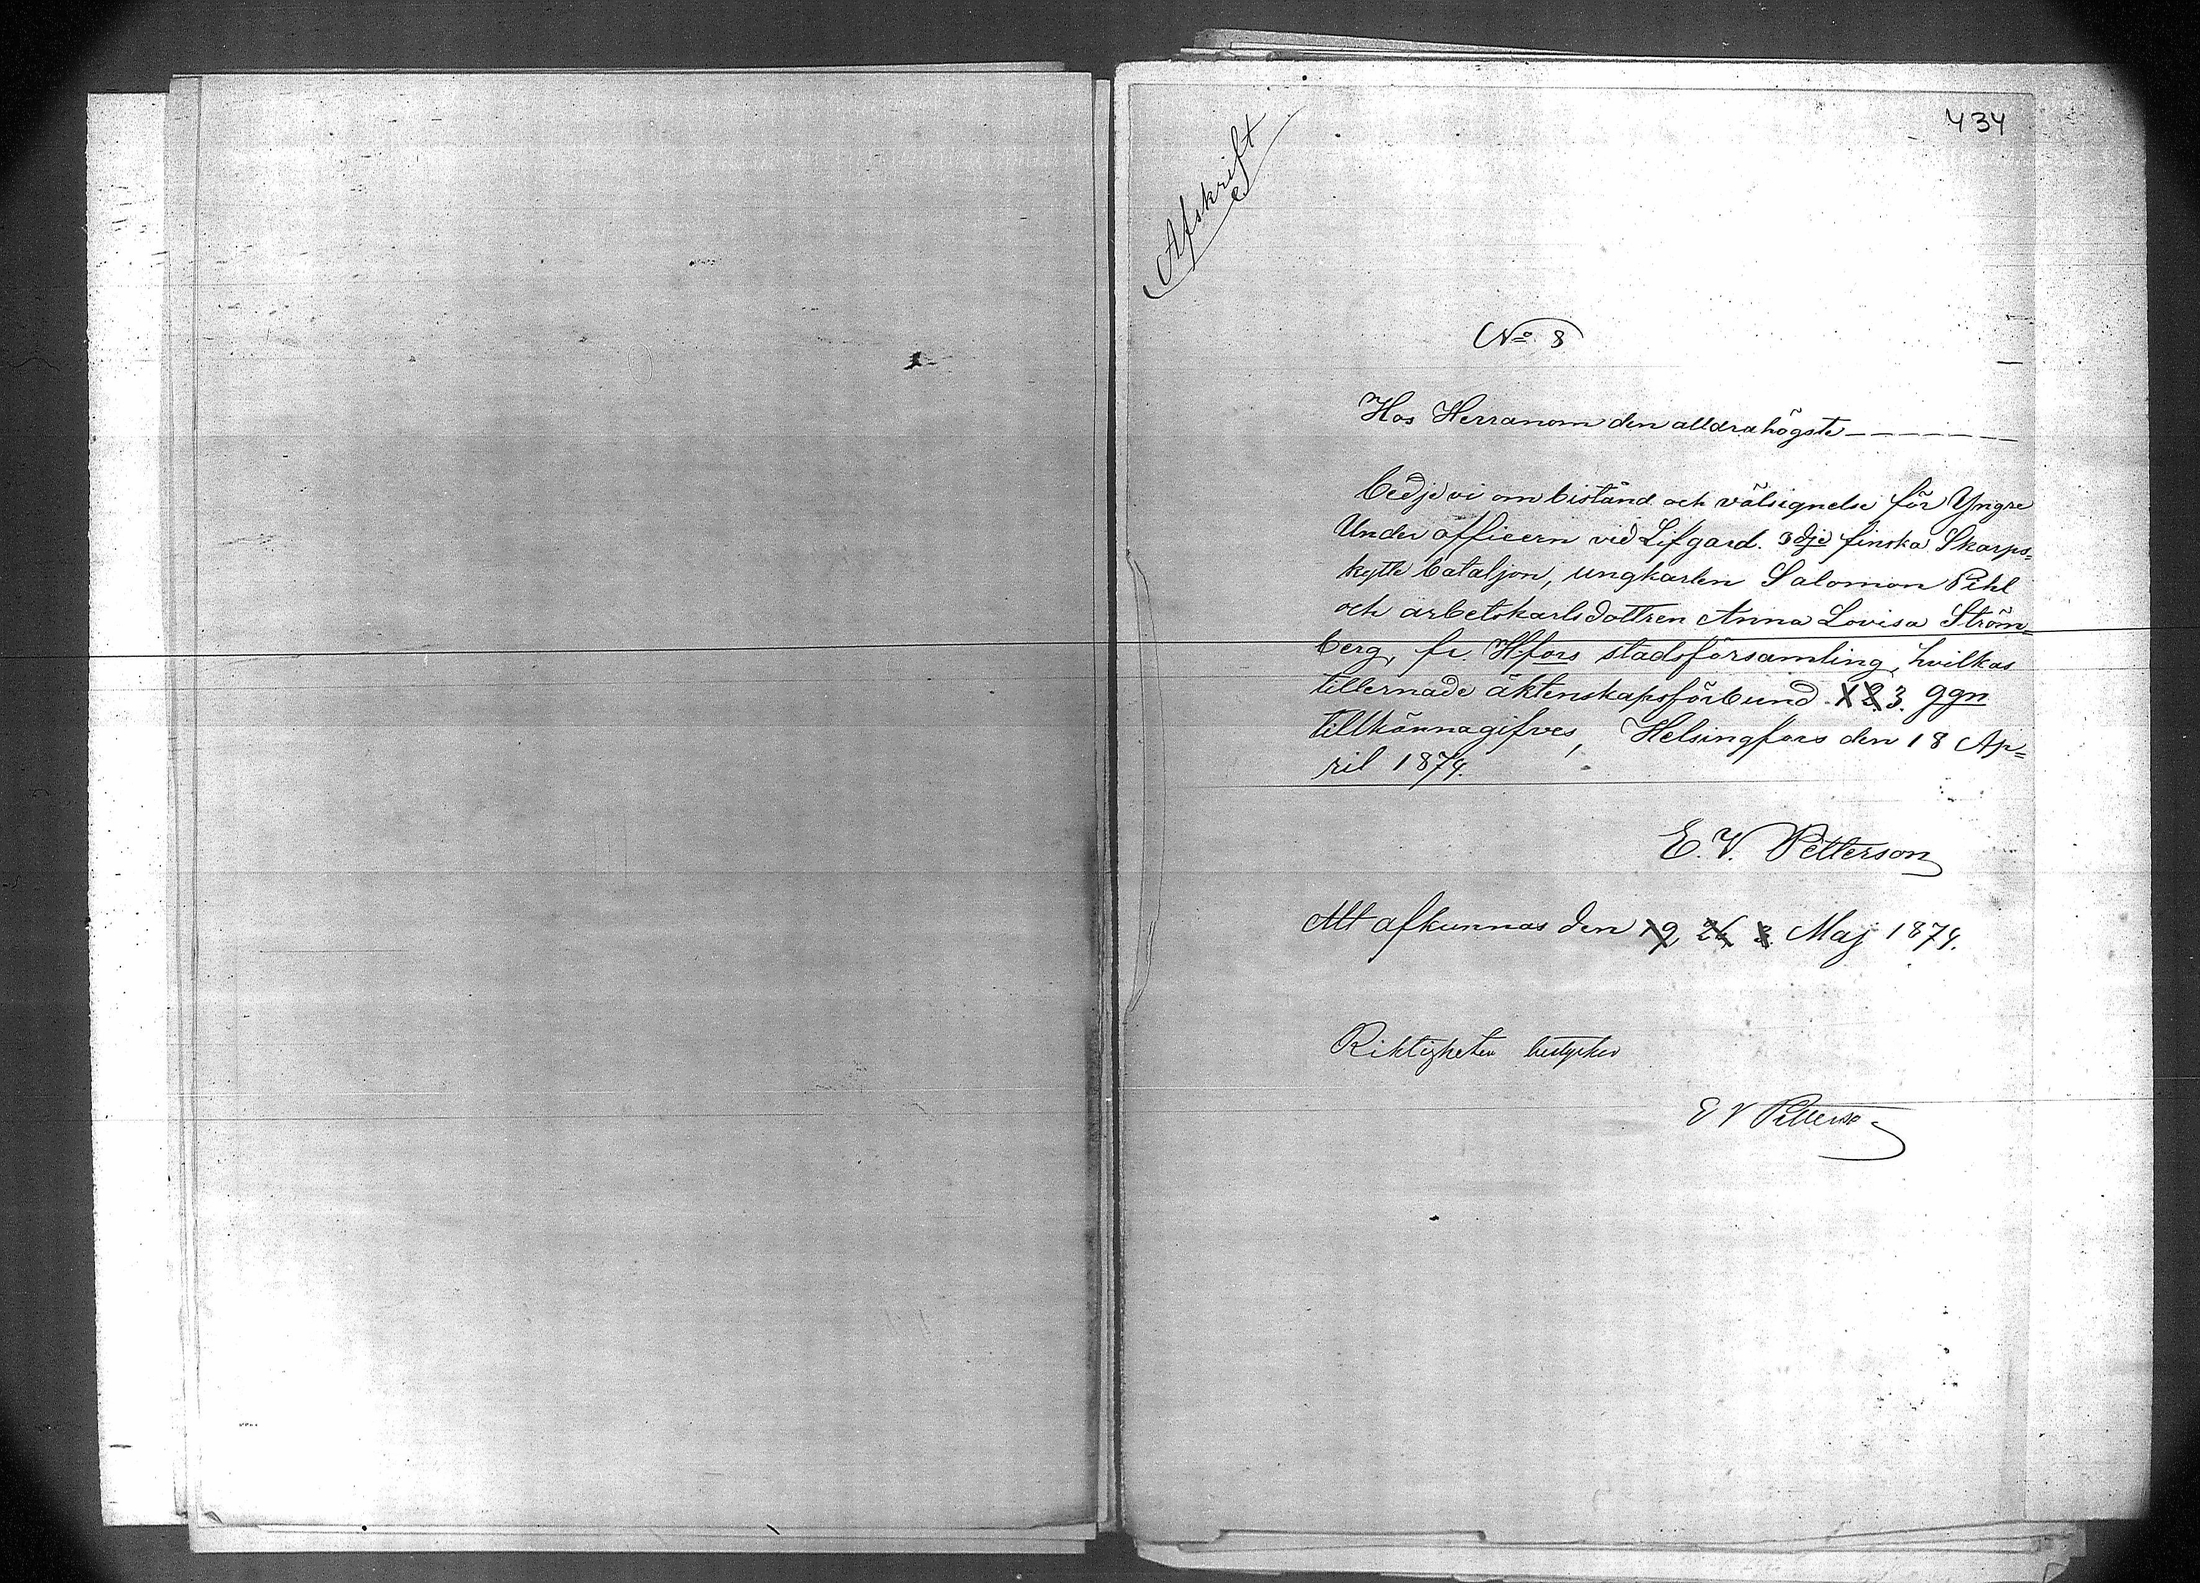 434
Afskrift
No 8
Hos Herranom den alldrahögste
bedje vi om bistånd och välsignelse för Yngre
Under officern vid Lifgard. 3dje finska Skarps=
kytte bataljon, ungkarlen Salomon Pihl
och arbetskarlsdottren Anna Lovisa Ström=
berg, fr. H:fors stadsförsamling, hvilkas
tillernade äktenskapsförbund 1 2 3. ggn
tillkännagifves, Helsingfors den 18 Ap=
ril 1874.
E. V. Petterson
Att afkunnas den 19, 26, 3 Maj 1874.
Riktigheten bestyrker
E V Petterson